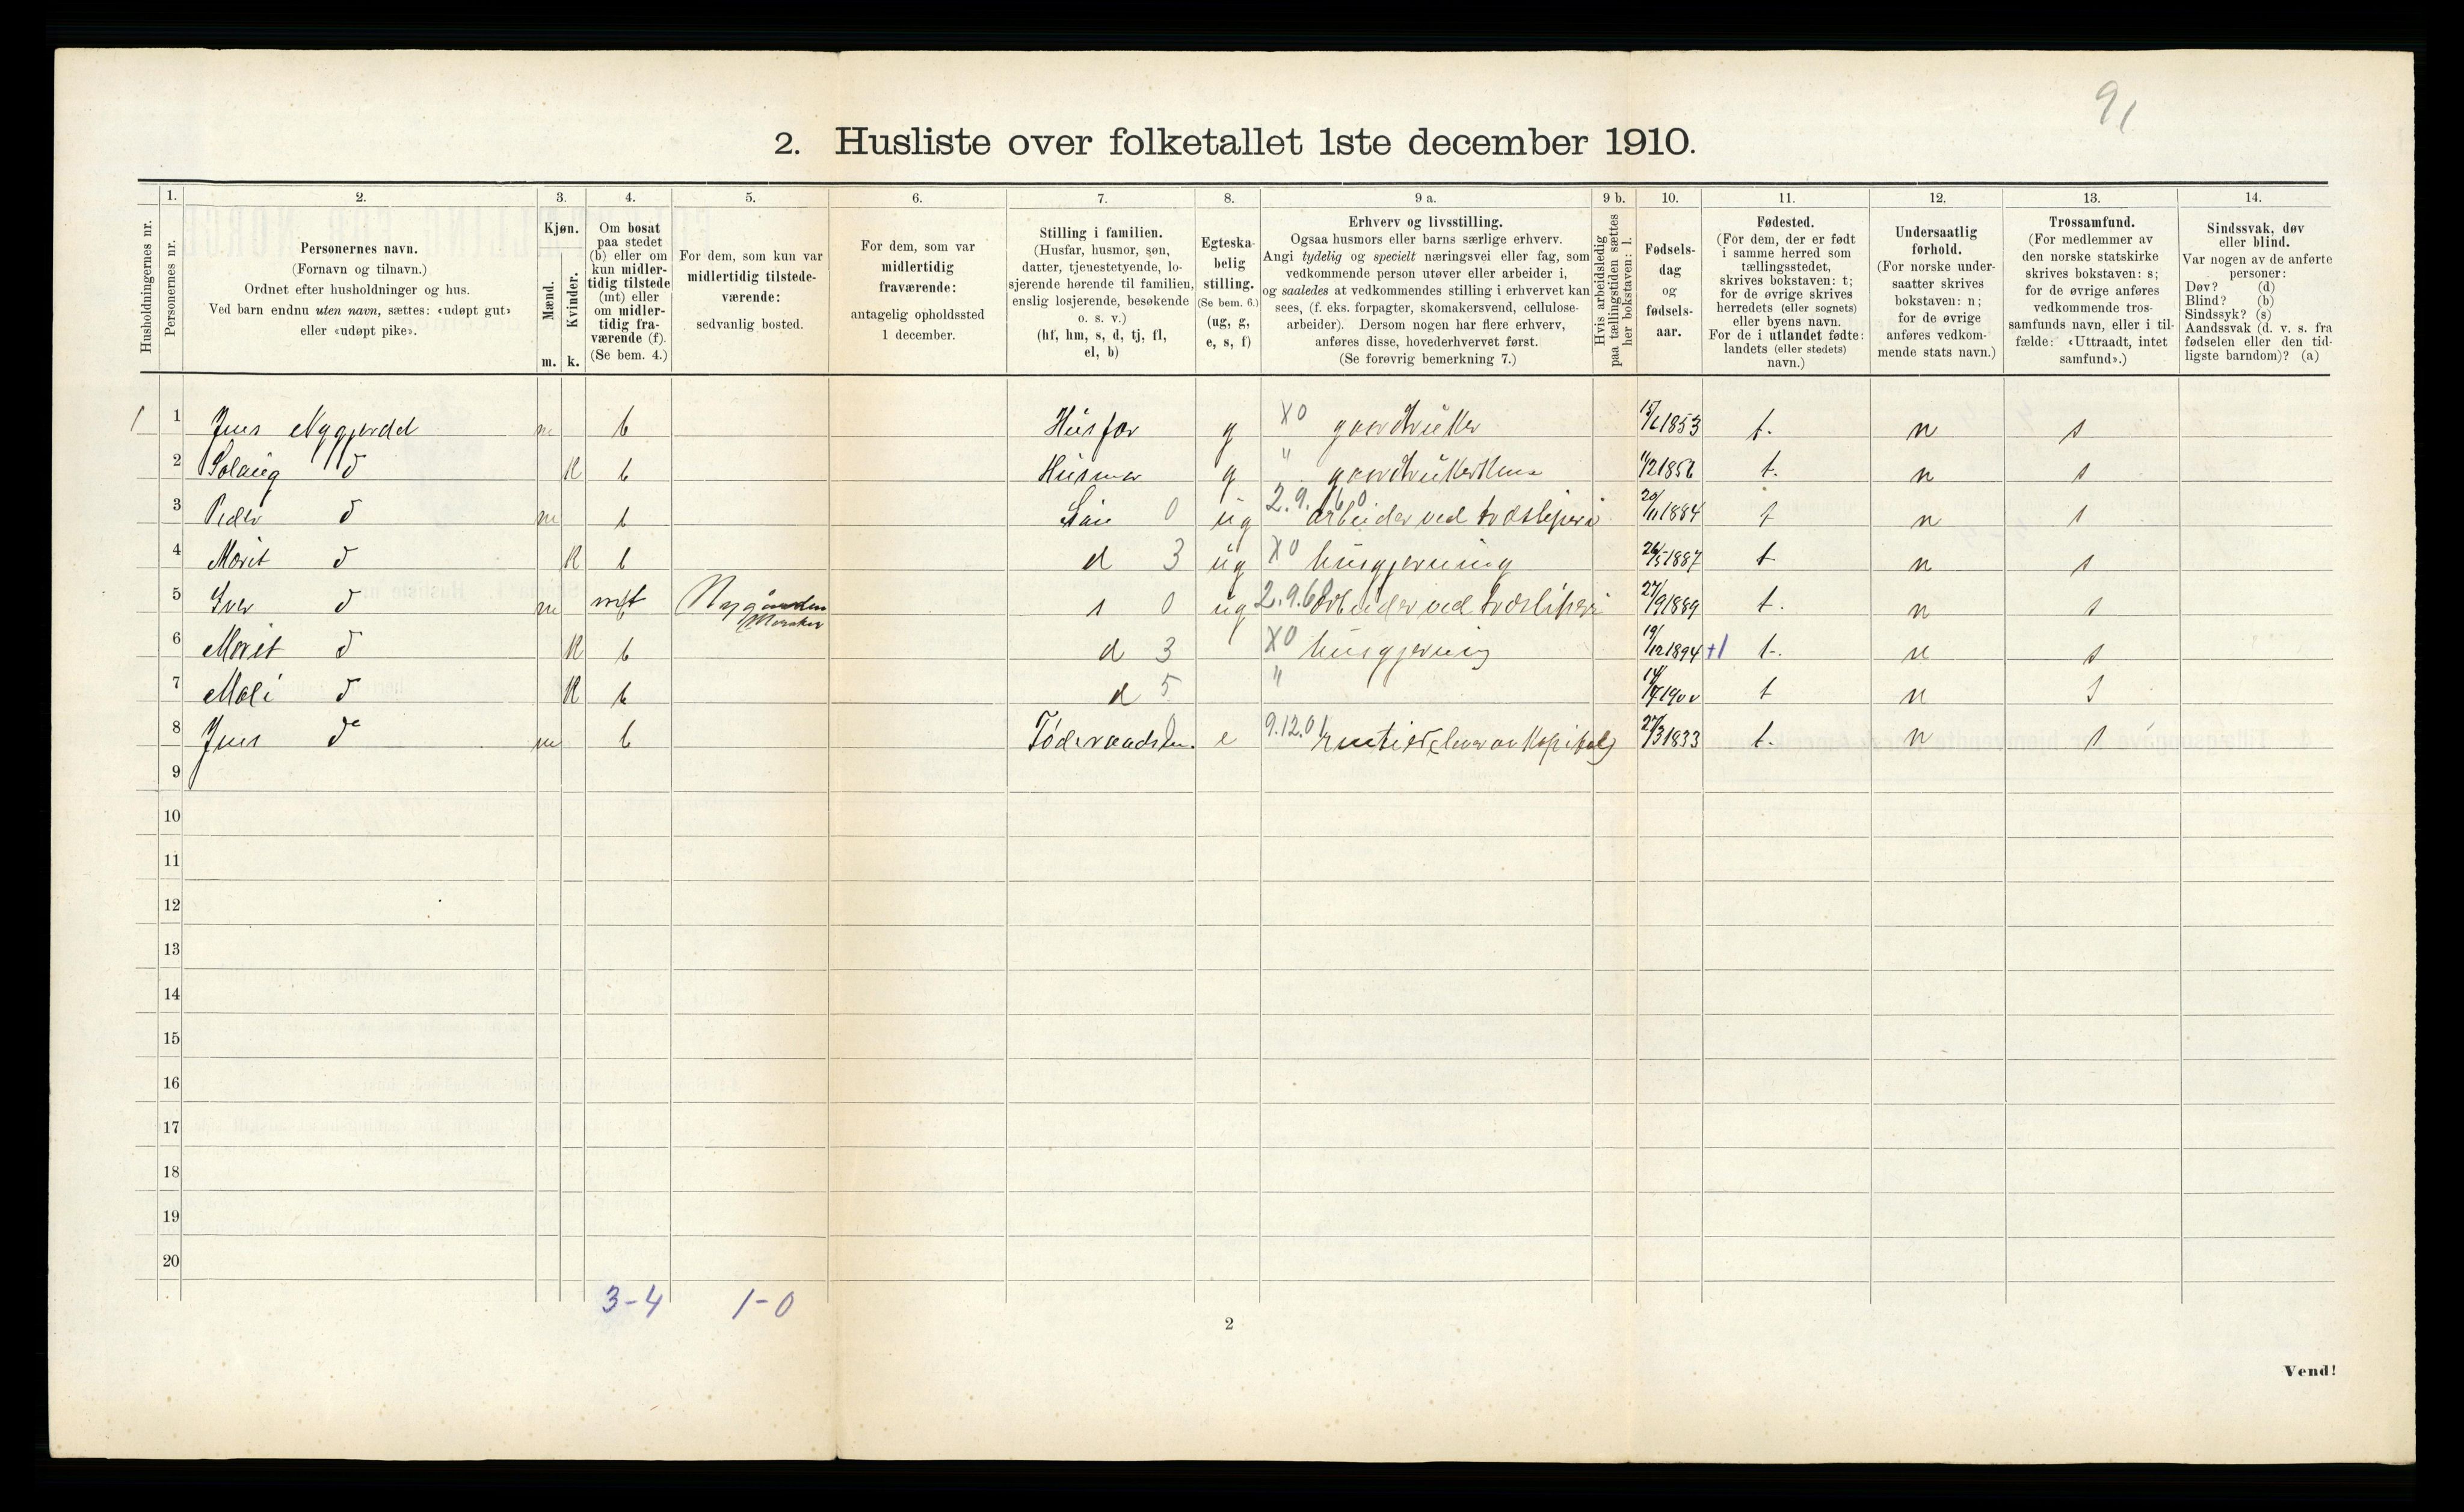 91
2. Husliste over folketallet 1ste december 1910.
Husholdningernes nr.
1. Personernes nr.
2. Personernes navn. (Fornavn og tilnavn.) Ordnet efter husholdninger og hus. Ved barn endnu uten navn, sættes: «udøpt gut» eller «udøpt pike».
3. Kjøn. Mænd. m. Kvinder. k.
4. Om bosat paa stedet (b) eller om kun midlertidig tilstede (mt) eller om midlertidig fraværende (f). (Se bem. 4.)
5. For dem, som kun var midlertidig tilstedeværende: sedvanlig bosted.
6. For dem, som var midlertidig fraværende: antagelig opholdssted 1 december.
7. Stilling i familien. (Husfar, husmor, søn, datter, tjenestetyende, losjerende hørende til familien, enslig losjerende, besøkende o. s. v.) (hf, hm, s, d, tj, fl, el, b)
8. Egteskabelig stilling. (Se bem. 6.) (ug, g, e, s, f)
9 a. Erhverv og livsstilling. Ogsaa husmors eller barns særlige erhverv. Angi tydelig og specielt næringsvei eller fag, som vedkommende person utøver eller arbeider i, og saaledes at vedkommendes stilling i erhvervet kan sees, (f. eks. forpagter, skomakersvend, cellulosearbeider). Dersom nogen har flere erhverv, anføres disse, hovederhvervet først. (Se forøvrig bemerkning 7.)
9 b. Hvis arbeidsledig paa tællingstiden sættes her bokstaven: l.
10. Fødselsdag og fødselsaar.
11. Fødested. (For dem, der er født i samme herred som tællingsstedet, skrives bokstaven: t; for de øvrige skrives herredets (eller sognets) eller byens navn. For de i utlandet fødte: landets (eller stedets) navn.)
12. Undersaatlig forhold. (For norske undersaatter skrives bokstaven: n; for de øvrige anføres vedkommende stats navn.)
13. Trossamfund. (For medlemmer av den norske statskirke skrives bokstaven: s; for de øvrige anføres vedkommende trossamfunds navn, eller i tilfælde: «Uttraadt, intet samfund».)
14. Sindssvak, døv eller blind. Var nogen av de anførte personer: Døv? (d) Blind? (b) Sindssyk? (s) Aandssvak (d. v. s. fra fødselen eller den tidligste barndom)? (a)
1 1 Jens Nygjerdd m b Husfar g X0 gaardbruker 1853 t. n s
2 Solaug d K b Husmor g " 1856 t. n s
3 Peder d m b Søn 0 ug 2.9.60 arbeider ved træsliperi 20/11 1884 t n s
4 Marit d K b d 3 ug X0 husgjerning 26/5 1887 t n s
5 Iver d m mt Nygaarden Meraker s 0 ug 2.9.60 arbeider ved træsliperi 27/9 1889 t. n s
6 Marit d K b d 3 X0 husgjerning 19/12 1894 +1 t. n s
7 Mali d K b d 5 " t n s
8 Jens do m b e 9.12.01 rentier (lever av Kapital) 27/3 1833 t. n s
9
10
11
12
13
14
15
16
17
18
19
20
3-4 1-0
2
Vend!